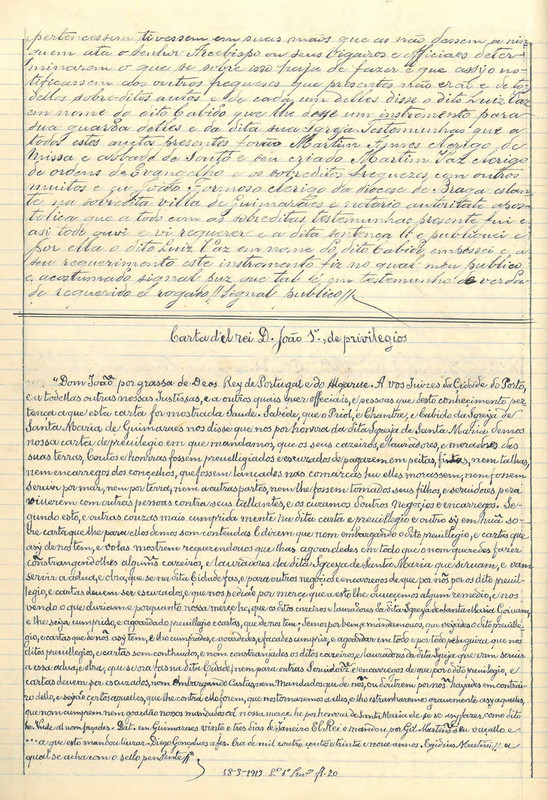 pertencessem tivessem em suas mãos que as não dessem a nin
guem ata o Senhor Arcebispo ou seus Vigairos e officiaes deter
minarom o que se sobre isso haja de fazer e que assy o no
tificassem aos outros fregueses que presentes não eral e de todos
delles sobreditos autos e de cada um delles disse o dito Luiz Vaz
em nome do dito Cabido que lhe desse um instromento para
sua guarda delles e da dita sua Igreja. Testemunhas que a
todos estes auctos presentes forão Martim Annes Clerigo de
Missa e e seu criado Martim Vaz Clerigo
de ordens de Evangelho e os sobreditos freguezes com outros
muitos e eu João Formoso Clerigo da diocese de Braga estan
te na sobredita villa de Guimarães e notario autoritate apos
tolica que a todo com as sobreditas testemunhas presente fui e
asi todo ouvi e vi requerer e a dita sentença li e publiquei e
por ella o dito Luiz Vaz em nome do dito Cabido em
seu requerimento este instromento fiz no qual meu publico
e acostumado signal fuz que tal é em testemunho de verda
de requerido e rogado // Signal publico //
Carta d'el rei D. João 1º, de privilegios
"Dom João por grassa de Deos Rey de Portugal e do Algarve. A vos Juizes da Cidade do Porto,
e a todellas outras nossas Justissas, e a outros quais quer officiais, e pessoas que desto conhecimento per
tença a que esta carta for mostrada Saude. Sabede, que o Priol, e Chantre, e Cabido da Igreja de
Santa Maria, de Guimaraes nos disse que nos por honrra da dita Igreja de Santa Maria demos
nossa carta de previlegio em que mandamos, que os seus cazeiros, e lauradores, e moradores das
suas terras, Coutos e honrras fossem previlligiados e escuzados de pagarem em peitas, fintas, nem talhas,
nem encarregos dos conçelhos, que fosem lancados nas comarcas hu elles morassem, nem fossem
servir por mar, nem por terra, nem a outras partes, nem lhe fosem tomados seus filhos, e servidores pera
viverem com outras pessoas contra seus tallantes, e os outros negocios e encarregos. Se-
gundo esto, e outras couzas mais cumprida mente na dita carta e previllegio e outro sy em huã so-
bre carta que lhe para ello demos som contehudas E diram que nom embargando o dito previllegio, e cartas que
asy de nos tem, e volas mostrem requerendouos que lhas agoardedes em todo que o nom queredes fazer
constrangendolhes alguñs cazeiros, e lauradores da dita Igreja de Santa Maria que siruam, e vam
servir a adua, e obra, que se na dita Cidade fas, e para outros negocios e encarregos de que por nós por os dito previl-
legio, e cartas devem ser escuzados, e que nos pedião por merce que a esto lhe ouvesemos algum remedio, e nos
vendo o que diziam e porquanto nossa merçe he, que os ditos cazeiros e lauradores da dita Igreja de Santa Maria
e lhe seja cumprido, e agoardado previllegio e cartas, que de nos tem: Temos por bem, e mandamouos, que vejades o dito preville-
gio, e cartas que de nós asy tem, e lho cumprades, e agoardedes, e façades cumprir, e agoardar em todo e por todo pela guiza que nos
ditos previllegios, e cartas som conthudos, e nom constranjades os ditos cazeiros, e lauradores da dita Igreja que vam servir
a essa adua, e obra, que se ora fas na dita Cidade, nem para outras e encarregos de que por o dito previlegio, e
cartas devem ser escuzados, nom embargando Cartas, nem Mandados, que de nos, ou doutrem por nos hajades em contrai-
ro dello, e sejais certos aquelles, que lhe contra ello forem, que nos tornaremos a elles, e lho estranharemos gravemente asy aquelles,
que nom cumprem nem goardão nossos mandados ca nossa merçe he por honrra de Santa Maria de se asy fazer, como dito
he. Unde al nom façades. Dat. em Guimaraes vinte e tres dias de Janeiro El Rei o mandou por Gil Martins seu vassallo e
... a que esto mandou livrar. Diogo Gonçalves a fes. Era de mil coutro centos e trinta e nove annos. Egidius Martini // a
qual se acharom o sello pendente //"
18-3-1919 Lº 1º Privº fl. 20